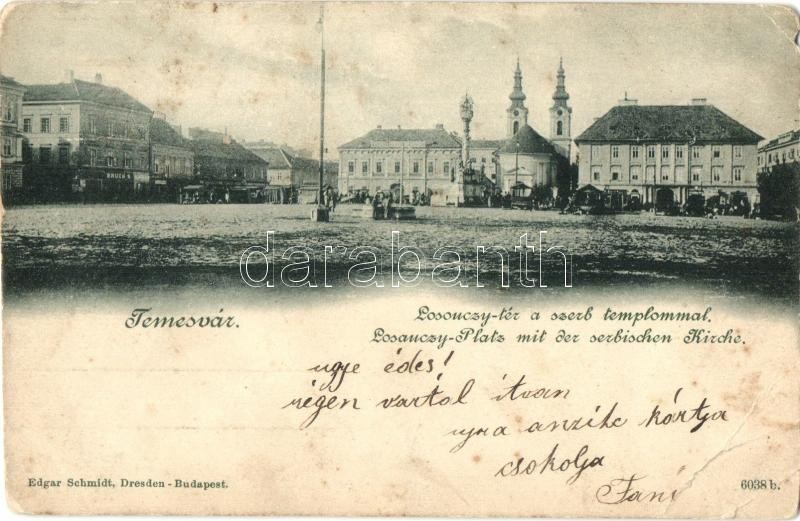 BRUCK
darabanth
Temesvár.
Losonczy-tér a szerb templommal.
Losonczy-Platz mit der serbischen Kirche.
ugye édes!
régen vartol itvan
ujra anzikc kártja
csokolja
Fani
Edgar Schmidt, Dresden-Budapest.
6038 b.